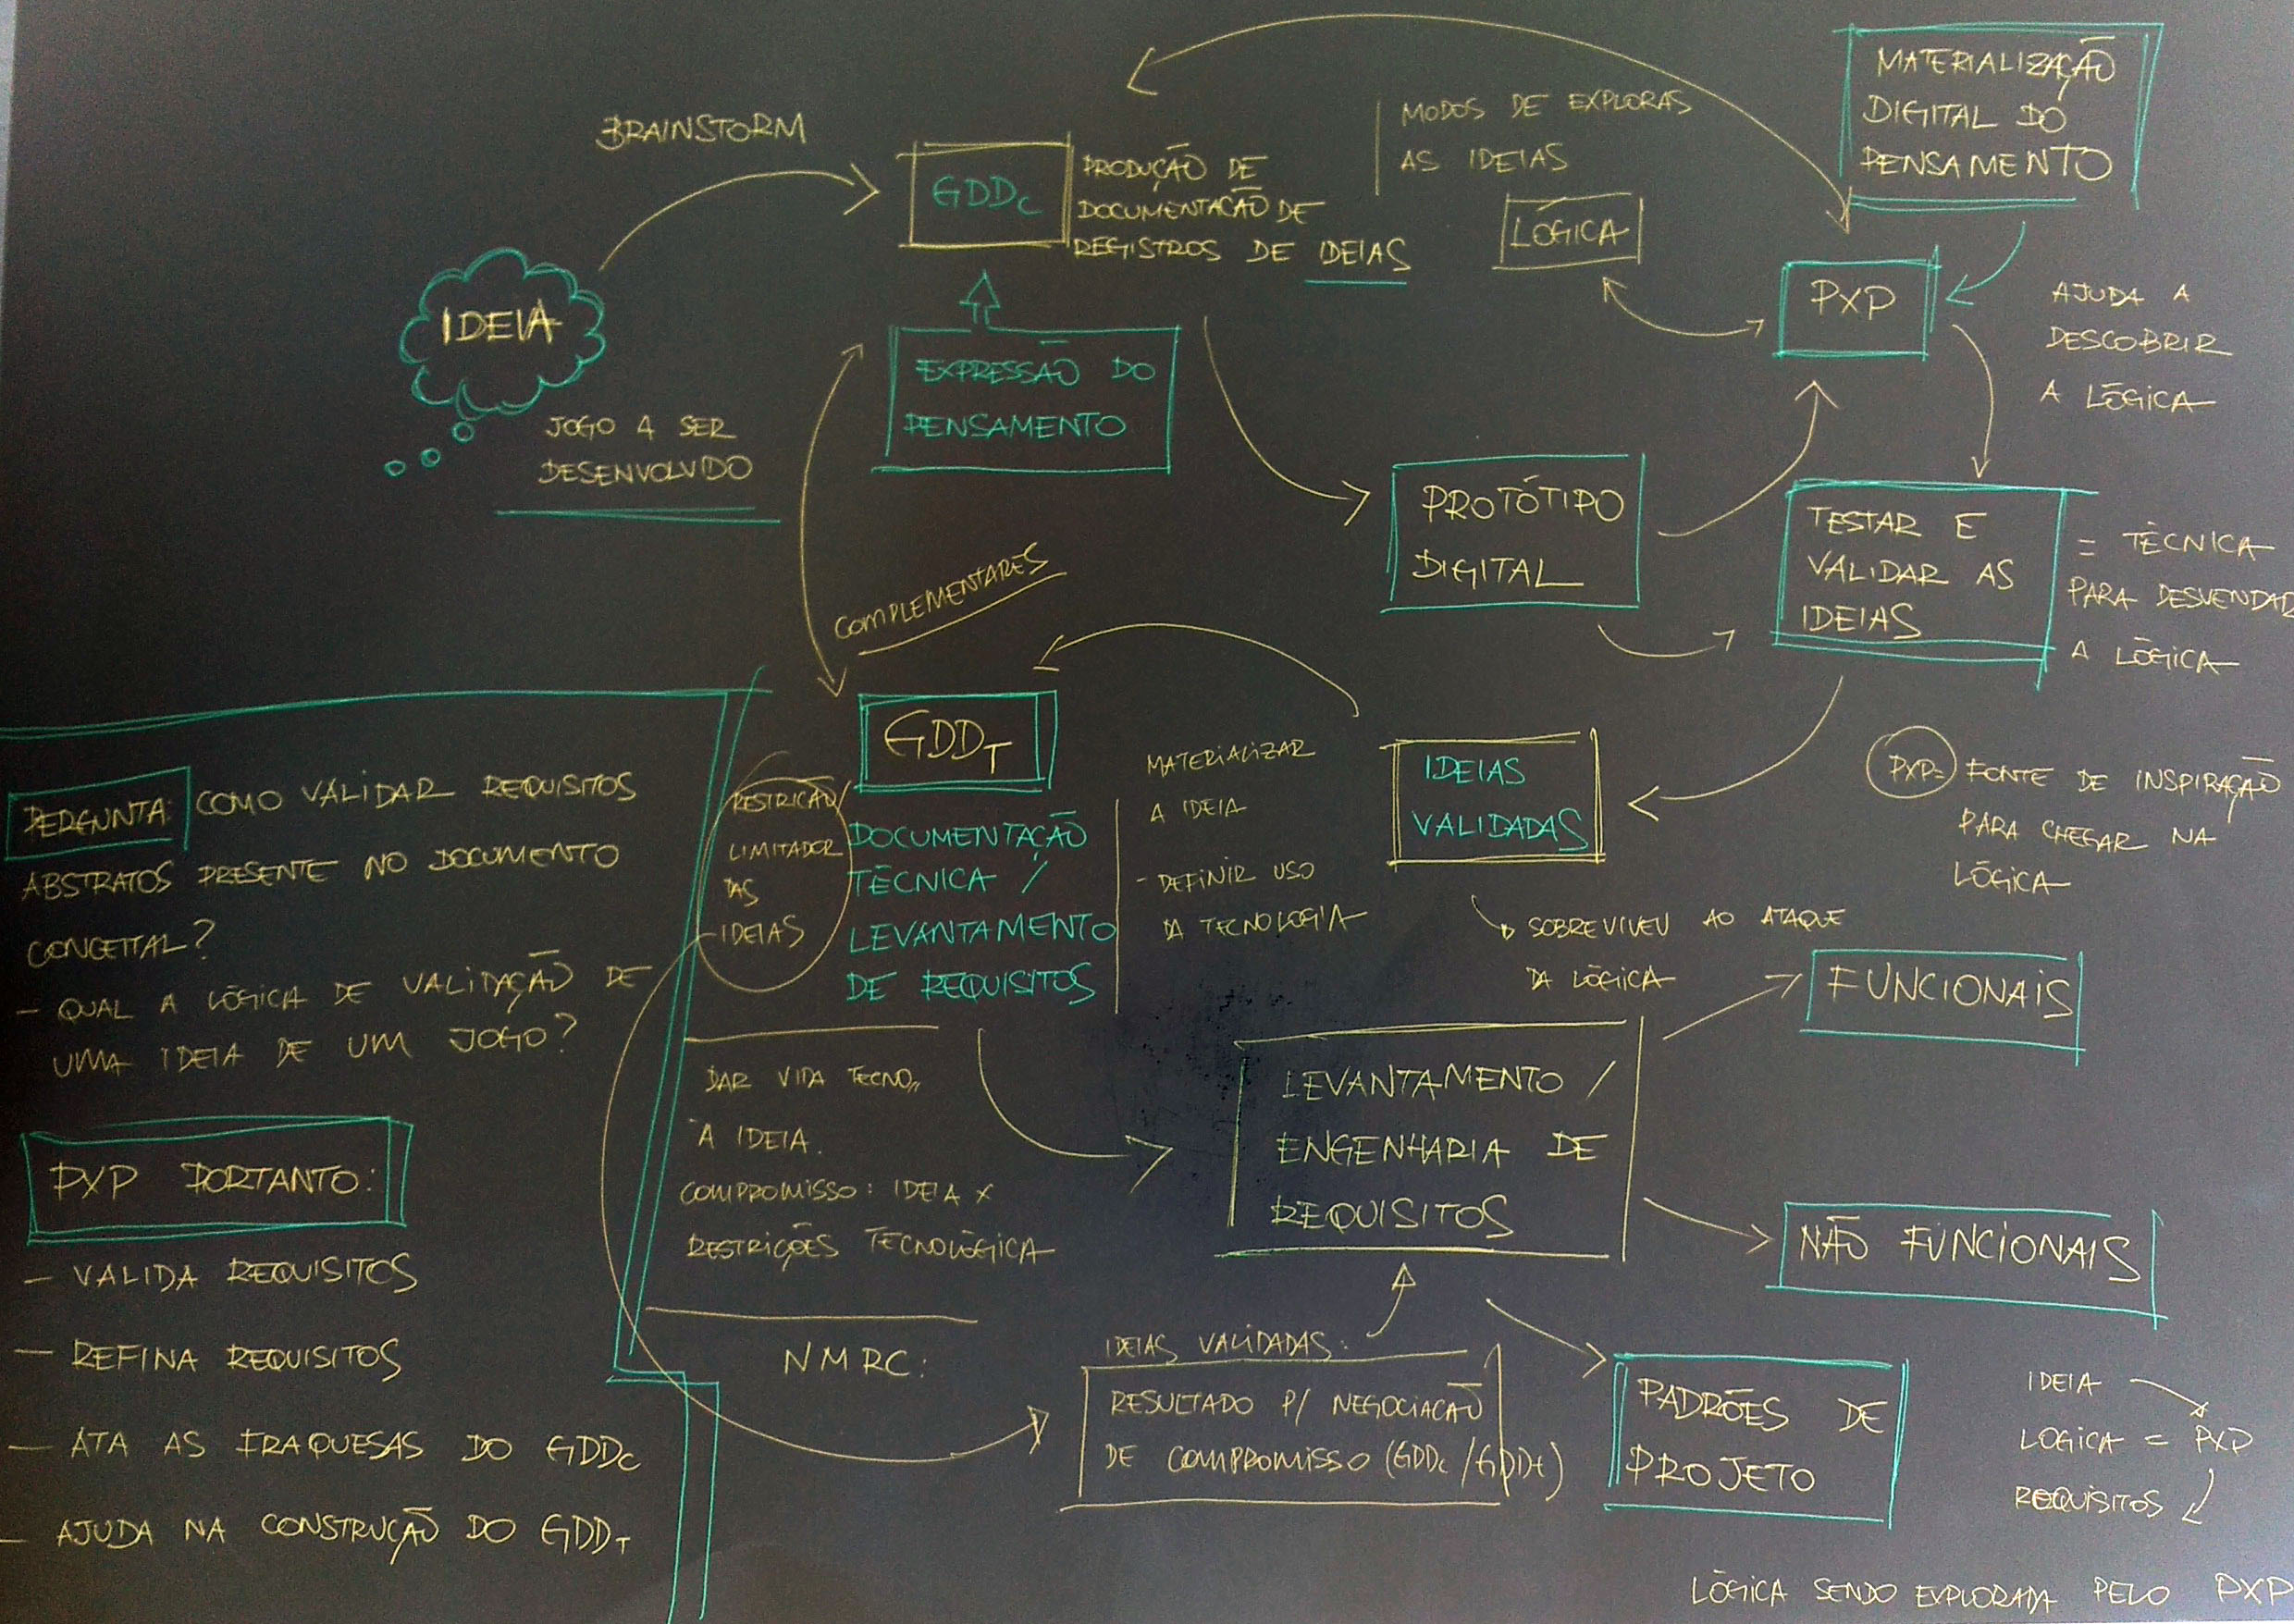 BRAINSTORM
IDEIA
JOGO A SER
DESENVOLVIDO
GDDc
PRODUÇÃO DE
DOCUMENTAÇÃO DE
REGISTROS DE IDEIAS
MODOS DE EXPLORAS
AS IDEIAS
LÓGICA
MATERIALIZAÇÃO
DIGITAL DO
PENSAMENTO
PXP
AJUDA A
DESCOBRIR
A LÓGICA
EXPRESSÃO DO
PENSAMENTO
PROTÓTIPO
DIGITAL
TESTAR E
VALIDAR AS
IDEIAS
= TÉCNICA
PARA DESVENDAR
A LÓGICA
COMPLEMENTARES
GDDT
RESTRIÇÃO/
LIMITADOR
DAS
IDEIAS
DOCUMENTAÇÃO
TÉCNICA /
LEVANTAMENTO
DE REQUISITOS
MATERIALIZAR
A IDEIA
- DEFINIR USO
DA TECNOLOGIA
IDEIAS
VALIDADAS
SOBREVIVEU AO ATAQUE
DA LÓGICA
PXP= FONTE DE INSPIRAÇÃO
PARA CHEGAR NA
LÓGICA
PERGUNTA: COMO VALIDAR REQUISITOS
ABSTRATOS PRESENTE NO DOCUMENTO
CONCEITAL?
- QUAL A LÓGICA DE VALIDAÇÃO DE
UMA IDEIA DE UM JOGO?
PXP PORTANTO:
- VALIDA REQUISITOS
- REFINA REQUISITOS
- ATA AS FRAQUESAS DO GDDc
- AJUDA NA CONSTRUÇÃO DO GDDT
DAR VIDA TECNO,,
A IDEIA.
COMPROMISSO: IDEIA X
RESTRIÇÕES TECNOLÓGICA
NMRC:
LEVANTAMENTO /
ENGENHARIA DE
REQUISITOS
FUNCIONAIS
NÃO FUNCIONAIS
PADRÕES DE
PROJETO
IDEIAS VALIDADAS:
RESULTADO P/ NEGOCIACÃO
DE COMPROMISSO (GDDc / GDDt)
IDEIA
LOGICA = PXP
REQUISITOS
LÓGICA SENDO EXPLORADA PELO PXP